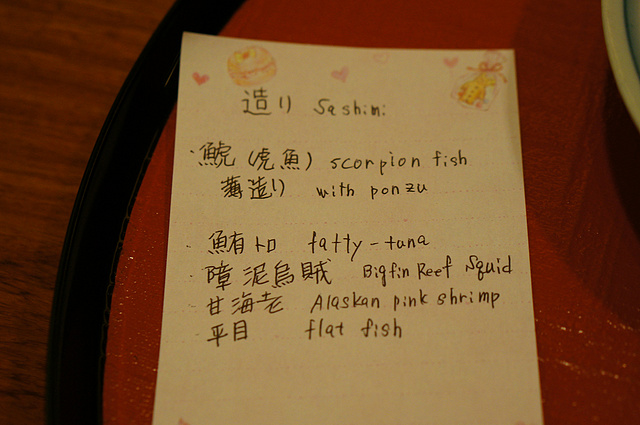 造り Sashimi
・鯱(虎魚) scorpion fish
薄造り with ponzu
・鮪トロ fatty-tuna
・障泥烏賊 Bigfin Reef Squid
・甘海老 Alaskan pink shrimp
・平目 flat fish